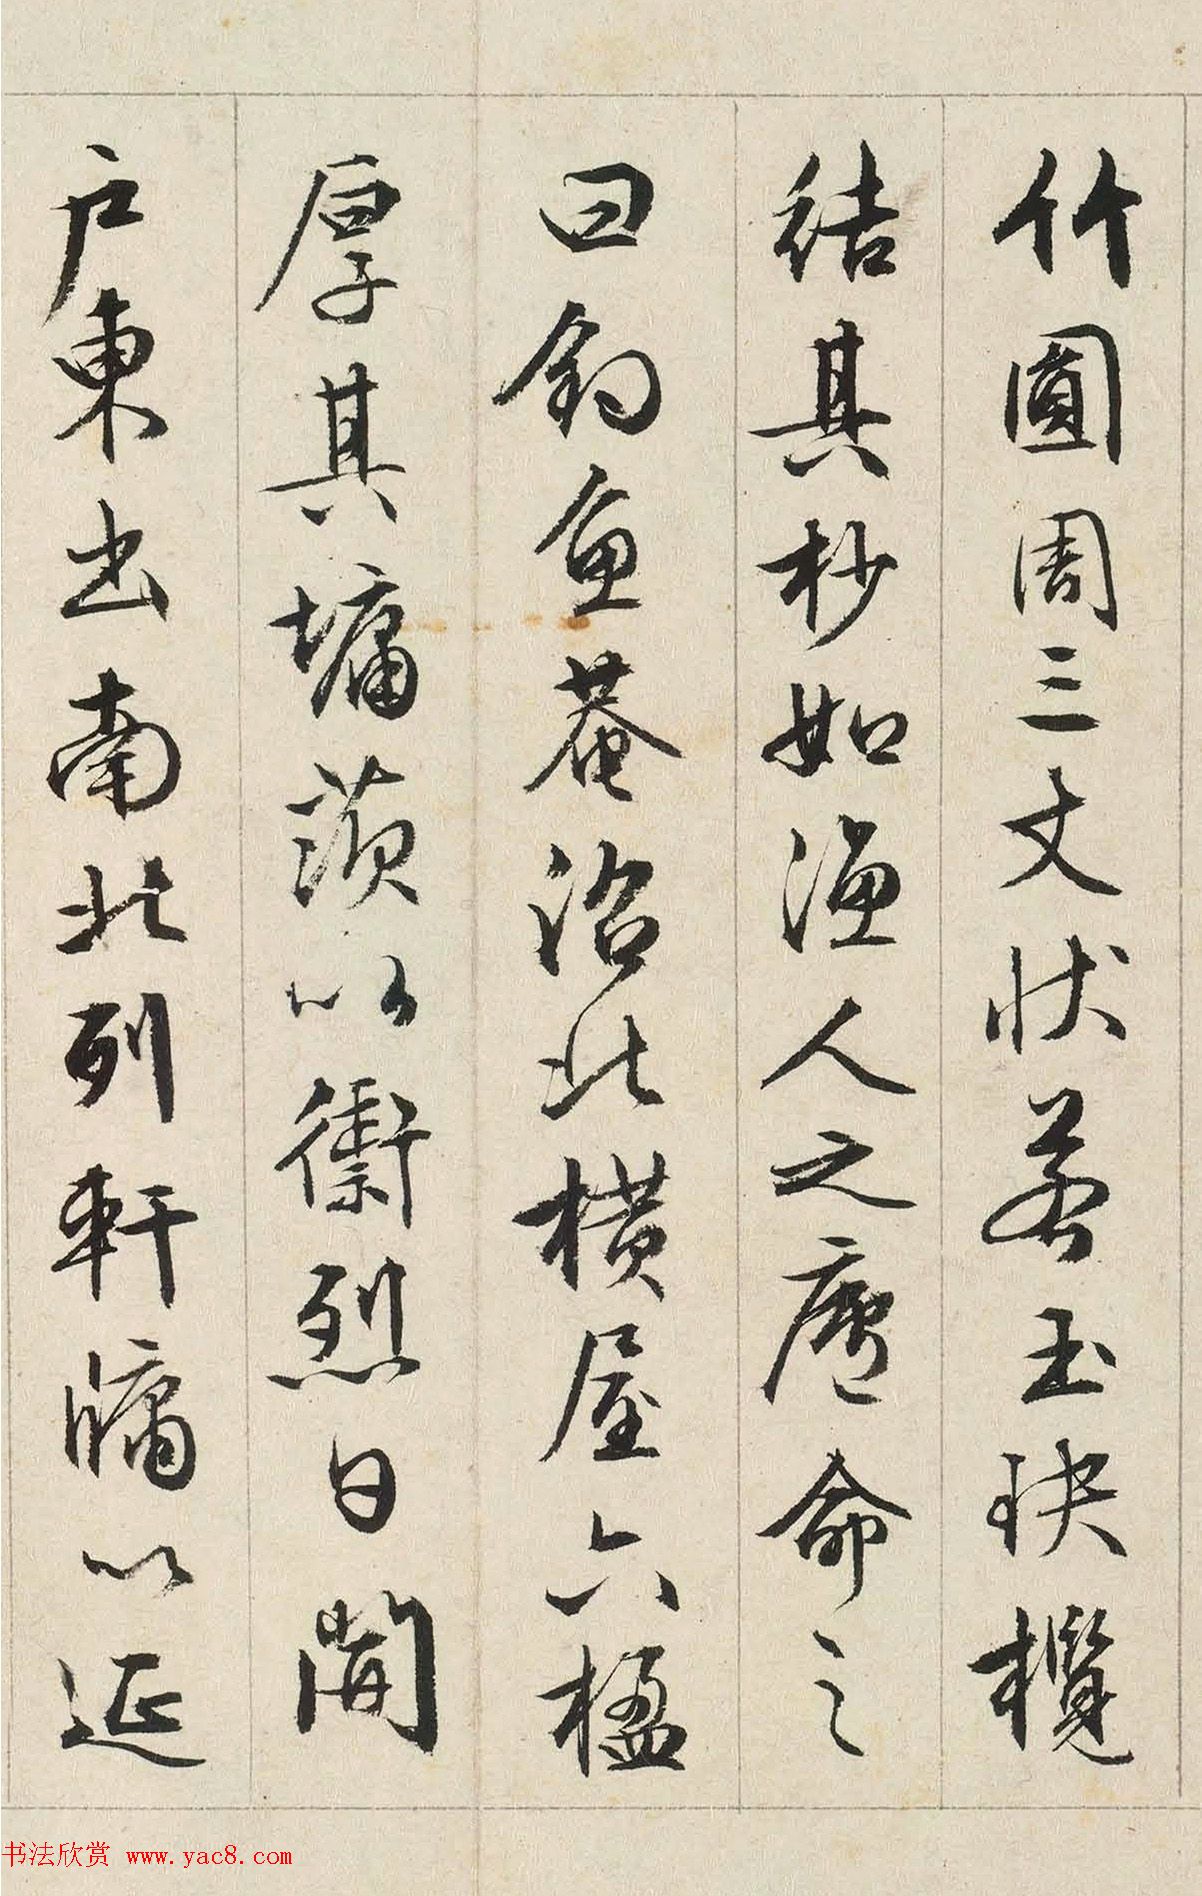 竹圓周三丈狀若玉玦攬
結其杪如漁人之廬命之
曰釣魚菴沼北橫屋六楹
厚其墉茨以禦烈日開
戶東出南北列軒牖以延
书法欣赏 www.yac8.com